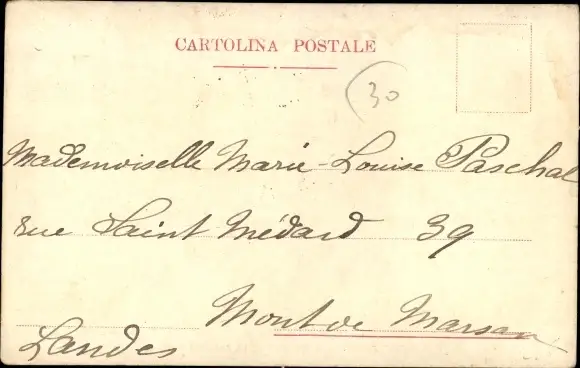 CARTOLINA POSTALE
30
Mademoiselle Marie-Louise Paschal
rue Saint Médard 39
Mont de Marsan
Landes